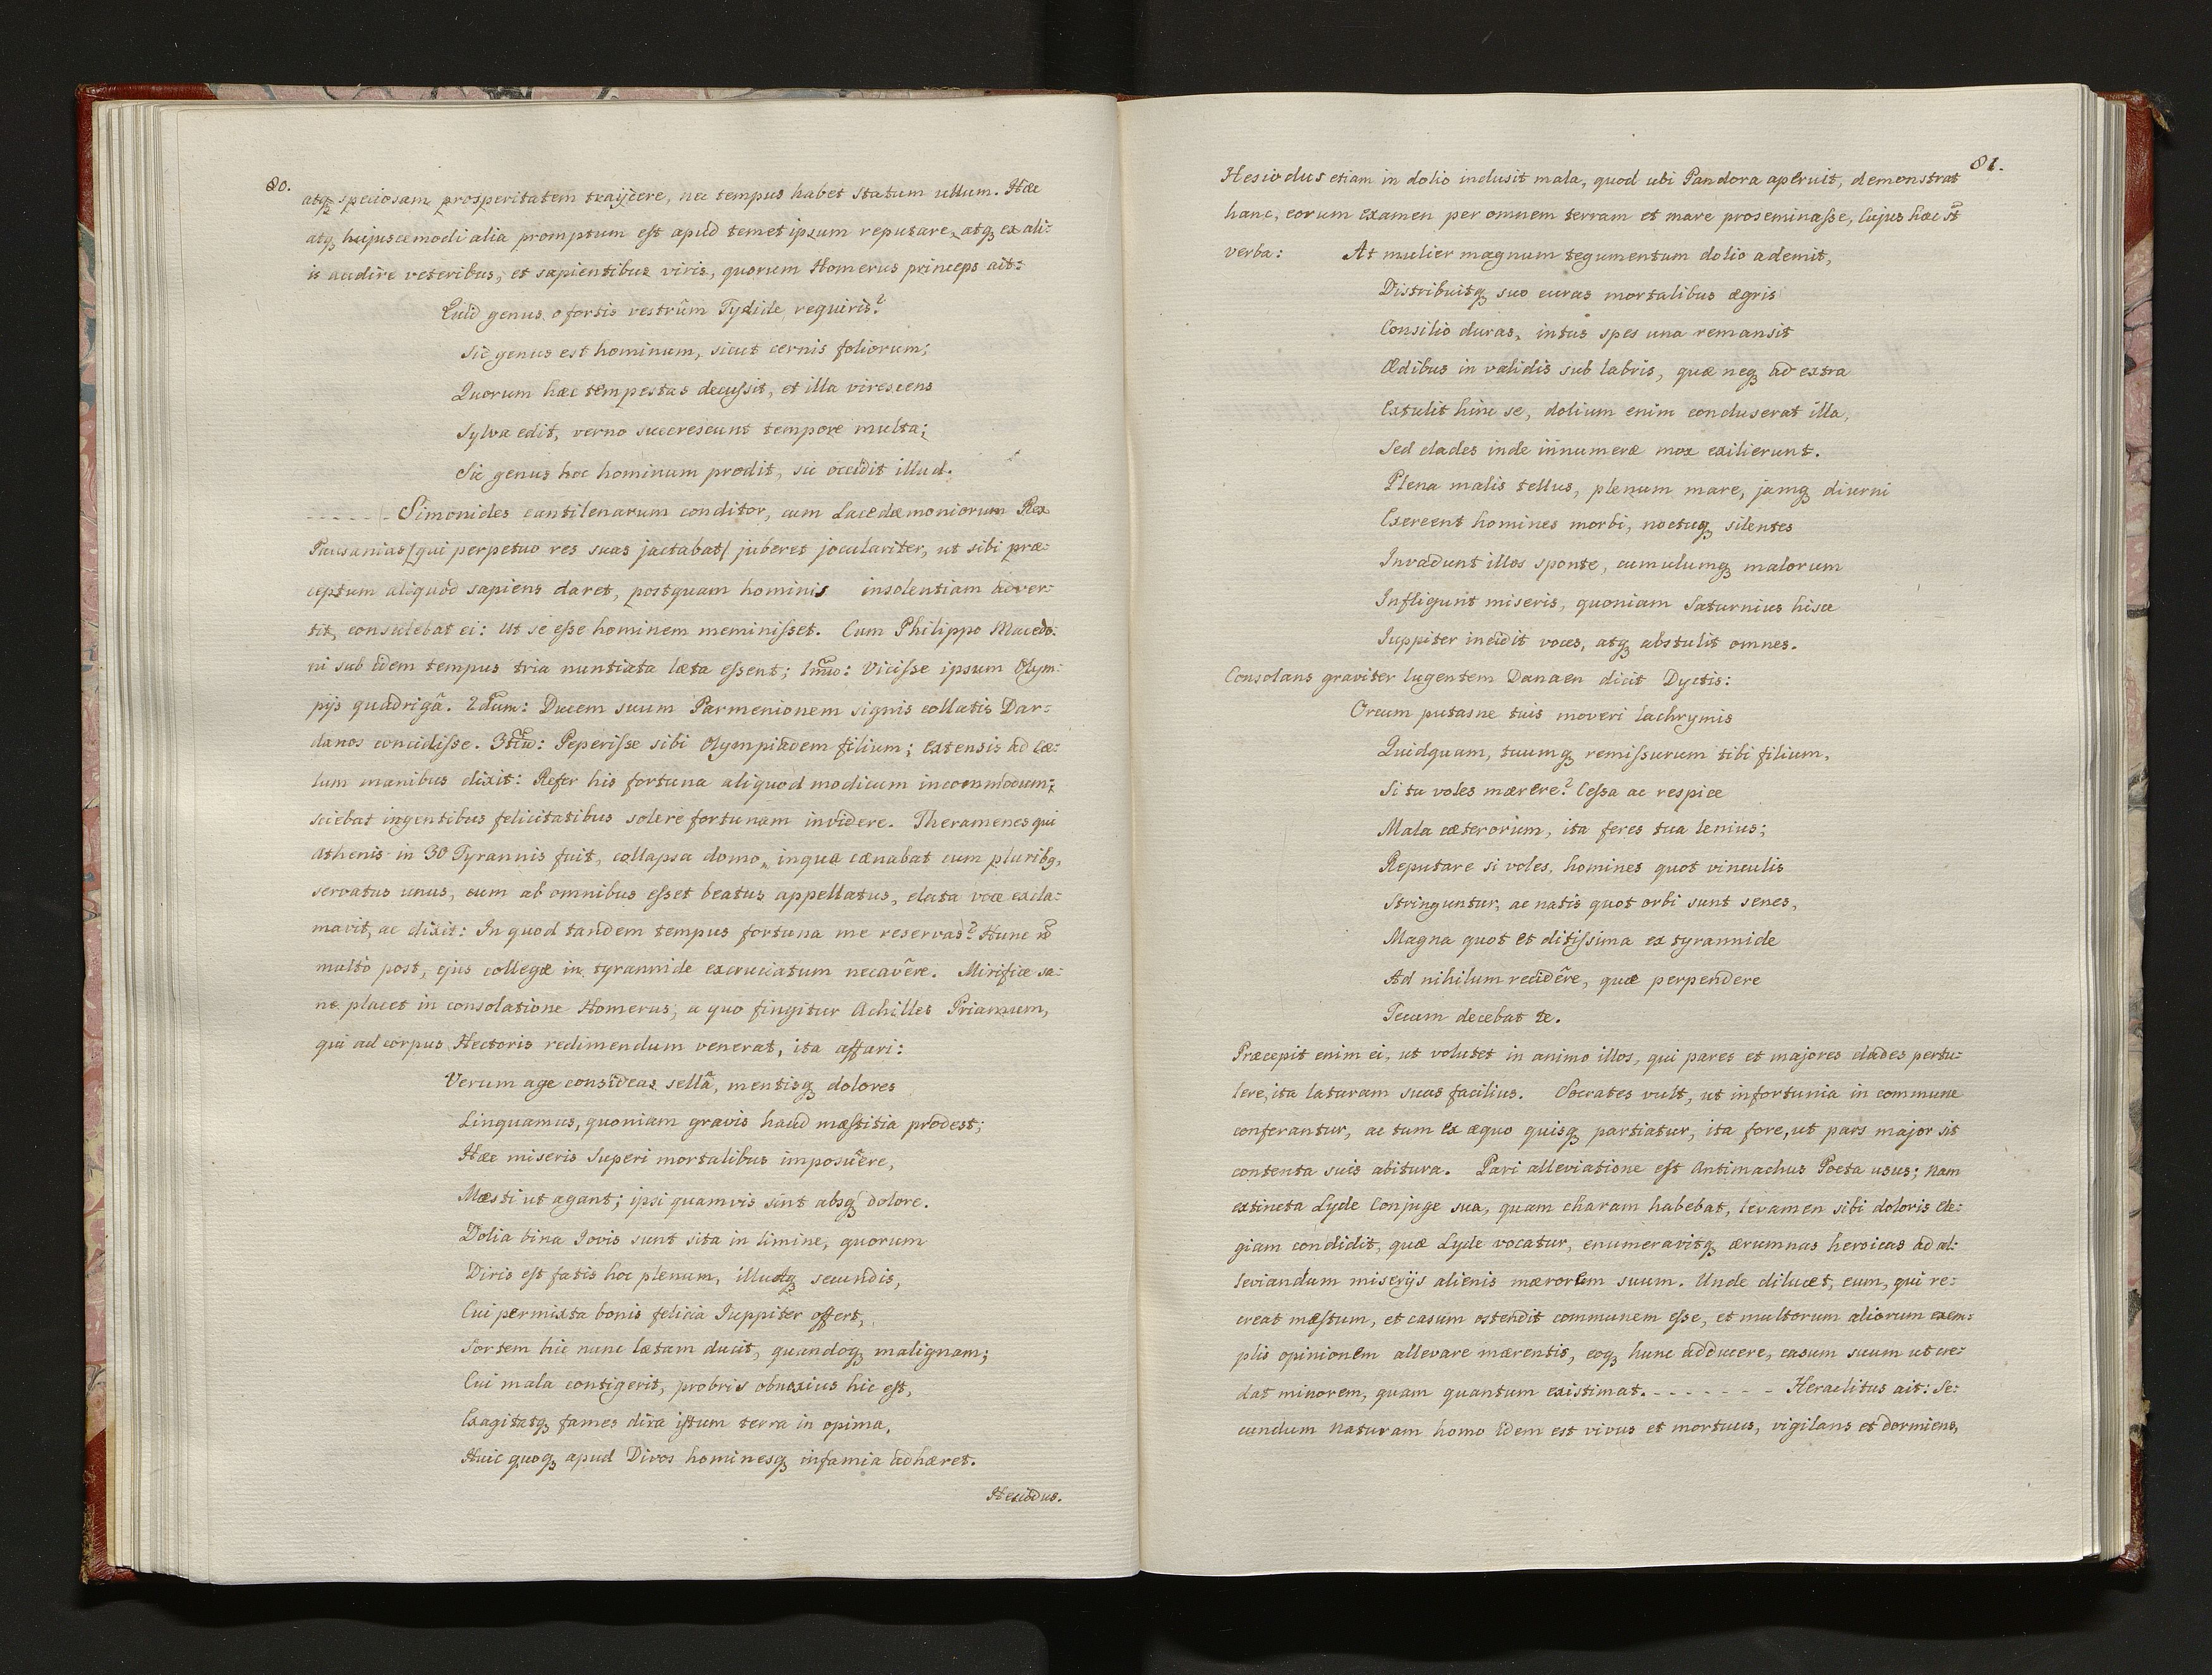 80.
atq speciosam prosperitatem traijcere, nec tempus habet statum ullum. Hæc
atq hujuscemodi alia promptum est apud temet ipsum reputare, atq ex ali-
is audire veteribus, et sapientibus viris, quorum Homerus princeps ait:
Quid genus o fortis vestrûm Tydide requiris?
Sic genus est hominum, sicut cernis foliorum;
Quorum hæc tempestas decussit, et illa virescens
Sylva edit, verno succrescunt tempore multa;
Sic genus hoc hominum prodit, sic occidit illud.
- - - - - Simonides cantilenarum conditor, cum Lacedæmoniorum Rex
Pausanias/qui perpetuo res suas jactabat/ juberet joculariter, ut sibi præ-
ceptum aliquod sapiens daret, postquam hominis insolentiam adver-
tit, consulebat ei: Ut se esse hominem meminisset. Cum Philippo Macedo-
ni sub idem tempus tria nuntiata læta essent; 1mũ: Vicisse ipsum Olym-
pijs quadrigâ. 2dum: Ducem suum Parmenionem signis collatis Dar-
danos concidisse. 3tiũ: Peperisse sibi Olympiadem filium; extensis ad cæ-
lum manibus dixit: Refer his fortuna aliquod modicum incommodum;
sciebat ingentibus felicitatibus solere fortunam invidere. Theramenes qui
Athenis in 30 Tyrannis fuit, collapsa domo, inqua cænabat cum pluribq,
servatus unus, cum ab omnibus esset beatus appellatus, elata voce excla-
mavit, ac dixit: In quod tandem tempus fortuna me reservas? Hunc nõ
multò post, ejus collegæ in tyrannide excruciatum necavêre. Mirifice sa-
ne placet in consolatione Homerus, a quo fingitur Achilles Priamum,
qui ad corpus Hectoris redimendum venerat, ita affari:
Verum age consideas sellâ, mentisq dolores
Linquamus, quoniam gravis haud mæstitia prodest;
Hæc miseris Superi mortalibus imposuêre,
Mæsti ut agant; ipsi quamvis sint absq dolore.
Dolia bina Jovis sunt sita in limine, quorum
Diris est fatis hoc plenum, illudq secundis,
Cui permixta bonis felicia Juppiter offert,
Sortem hic nunc lætam ducit, quandoq malignam;
Cui mala contigerit, probris obnoxius hic est,
Exagitatq fames dira istum terra in opima,
Huic quoq apud Divos hominesq infamia adhæret.
Hesiodus.
81.
Hesiodus etiam in dolio inclusit mala, quod ubi Pandora aperuit, demonstrat
hanc, eorum examen per omnem terram et mare proseminasse, cujus hæc st̃
verba: At mulier magnum tegumentum dolio ademit,
Distribuitq suo curas mortalibus ægris
Consilio duras, intus spes una remansit
Ædibus in validis sub labris, quæ neq ad extra
Extulit hinc se, dolium enim concluserat illa,
Sed clades inde innumeræ mox exilierunt.
Plena malis tellus, plenum mare, jamq diurni
Exercent homines morbi, noctuq silentes
Invadunt illos sponte, cumulumq malorum
Infligunt miseris, quoniam Saturnius hisce
Juppiter incidit voces, atq abstulit omnes.
Consolans graviter lugentem Danaen dicit Dyctis:
Orcum putasne tuis moveri lachrymis
Quidquam, tuumq remissurum tibi filium,
Si tu voles mærere? Cessa ac respice
Mala cæterorum, ita feres tua lenius;
Reputare si voles, homines quot vinculis
Stringuntur, ac natis quot orbi sunt senes,
Magna quot et ditissima ex tyrannide
Ad nihilum recidêre, quæ perpendere
Tecum decebat te.
Præcepit enim ei, ut volutet in animo illos, qui pares et majores clades pertu-
lere, ita laturam suas facilius. Socrates vult, ut infortunia in commune
conferantur, ac tum ex æquo quisq partiatur, ita fore, ut pars major sit
contenta suis abitura. Pari alleviatione est Antimachus Poeta usus; nam
extincta Lyde Conjuge sua, quam charam habebat, levamen sibi doloris ele-
giam condidit, quæ Lyde vocatur, enumeravitq ærumnas heroicas ad al-
leviandum miserijs alienis mærorem suum. Unde dilucet, eum, qui re-
creat mæstum, et casum ostendit communem esse, et multorum aliorum exem-
plis opinionem allevare mærentis, eoq hunc adducere, casum suum ut cre-
dat minorem, quam quantum existimat. - - - - - - - Heraclitus ait: Se-
cundum naturam homo idem est vivus et mortuus, vigilans et dormiens,